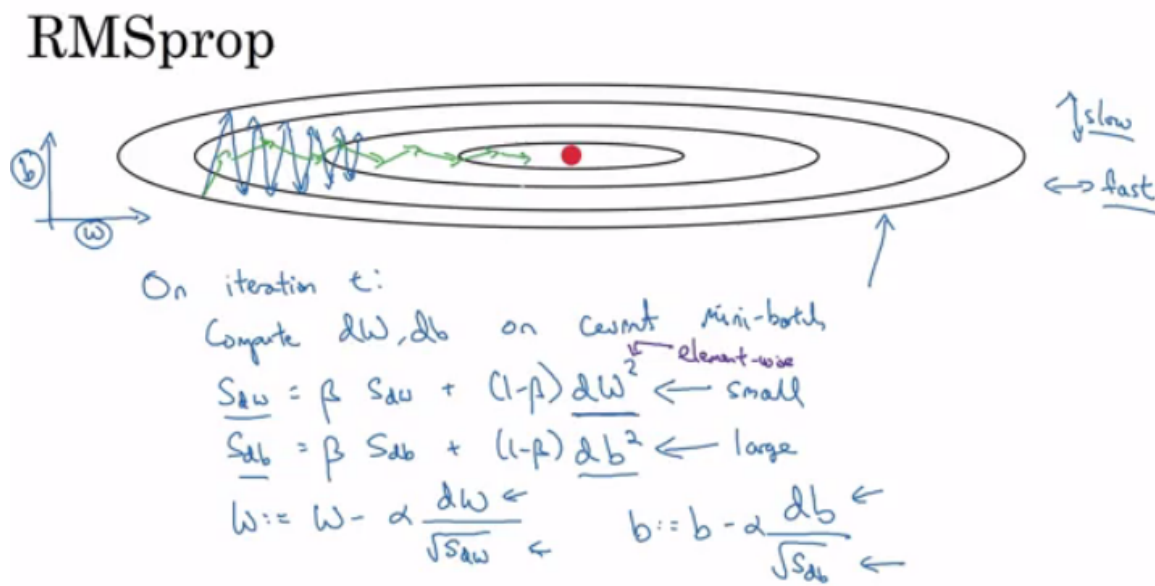 RMSprop
slow
fast
b
w
On iteration t:
Compute dW, db on current mini-batch
element-wise
S_dw = β S_dw + (1-β) dW² ← small
S_db = β S_db + (1-β) db² ← large
W := W - α dW/√S_dw
b := b - α db/√S_db